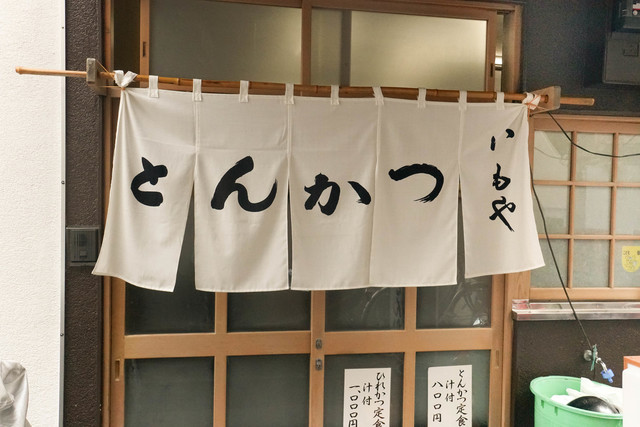 とんかつ
いもや
ひれかつ定食
汁付
一、〇〇〇円
とんかつ定食
汁付
八〇〇円